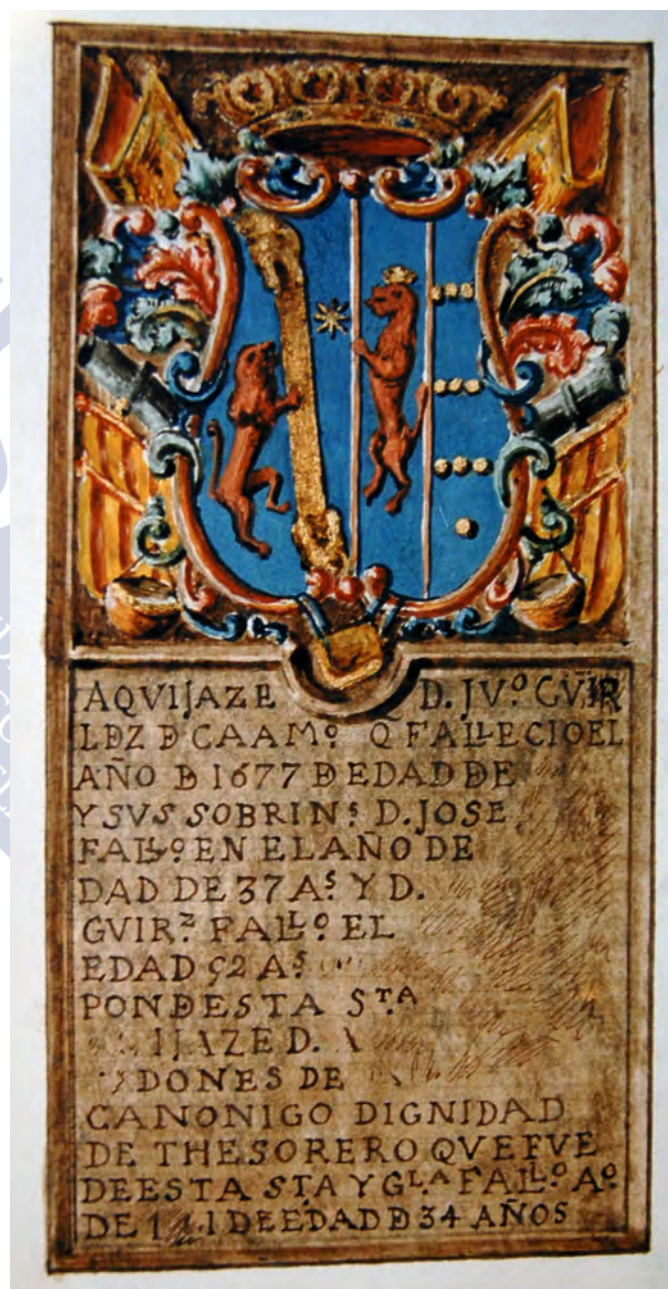 AQVIJAZE D. JVº GVIR
LDZ D CAAMº Q FALLECIO EL
AÑO D 1677 D EDAD DE
Y SVS SOBRINˢ D. JOSE
FALLº EN EL AÑO DE
DAD DE 37 Aˢ Y D.
GVIRᶻ FALLº EL
EDAD 92 Aˢ
PONDESTA Sᵀᴬ
IJAZE D.
DONES DE
CANONIGO DIGNIDAD
DE THESORERO QVE FVE
DE ESTA STA YGLᴬ FALLº Aº
DE DE EDAD D 34 AÑOS